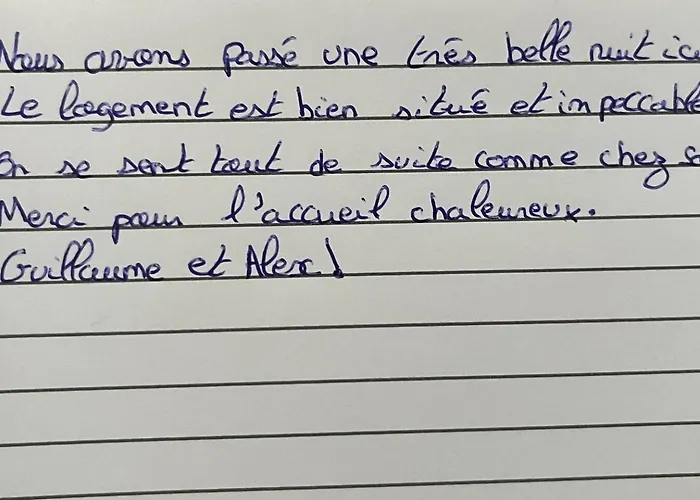 Nous avons passé une très belle nuit ici
Le logement est bien situé et impeccable
On se sent tout de suite comme chez s
Merci pour l'accueil chaleureux.
Guillaume et Alex!